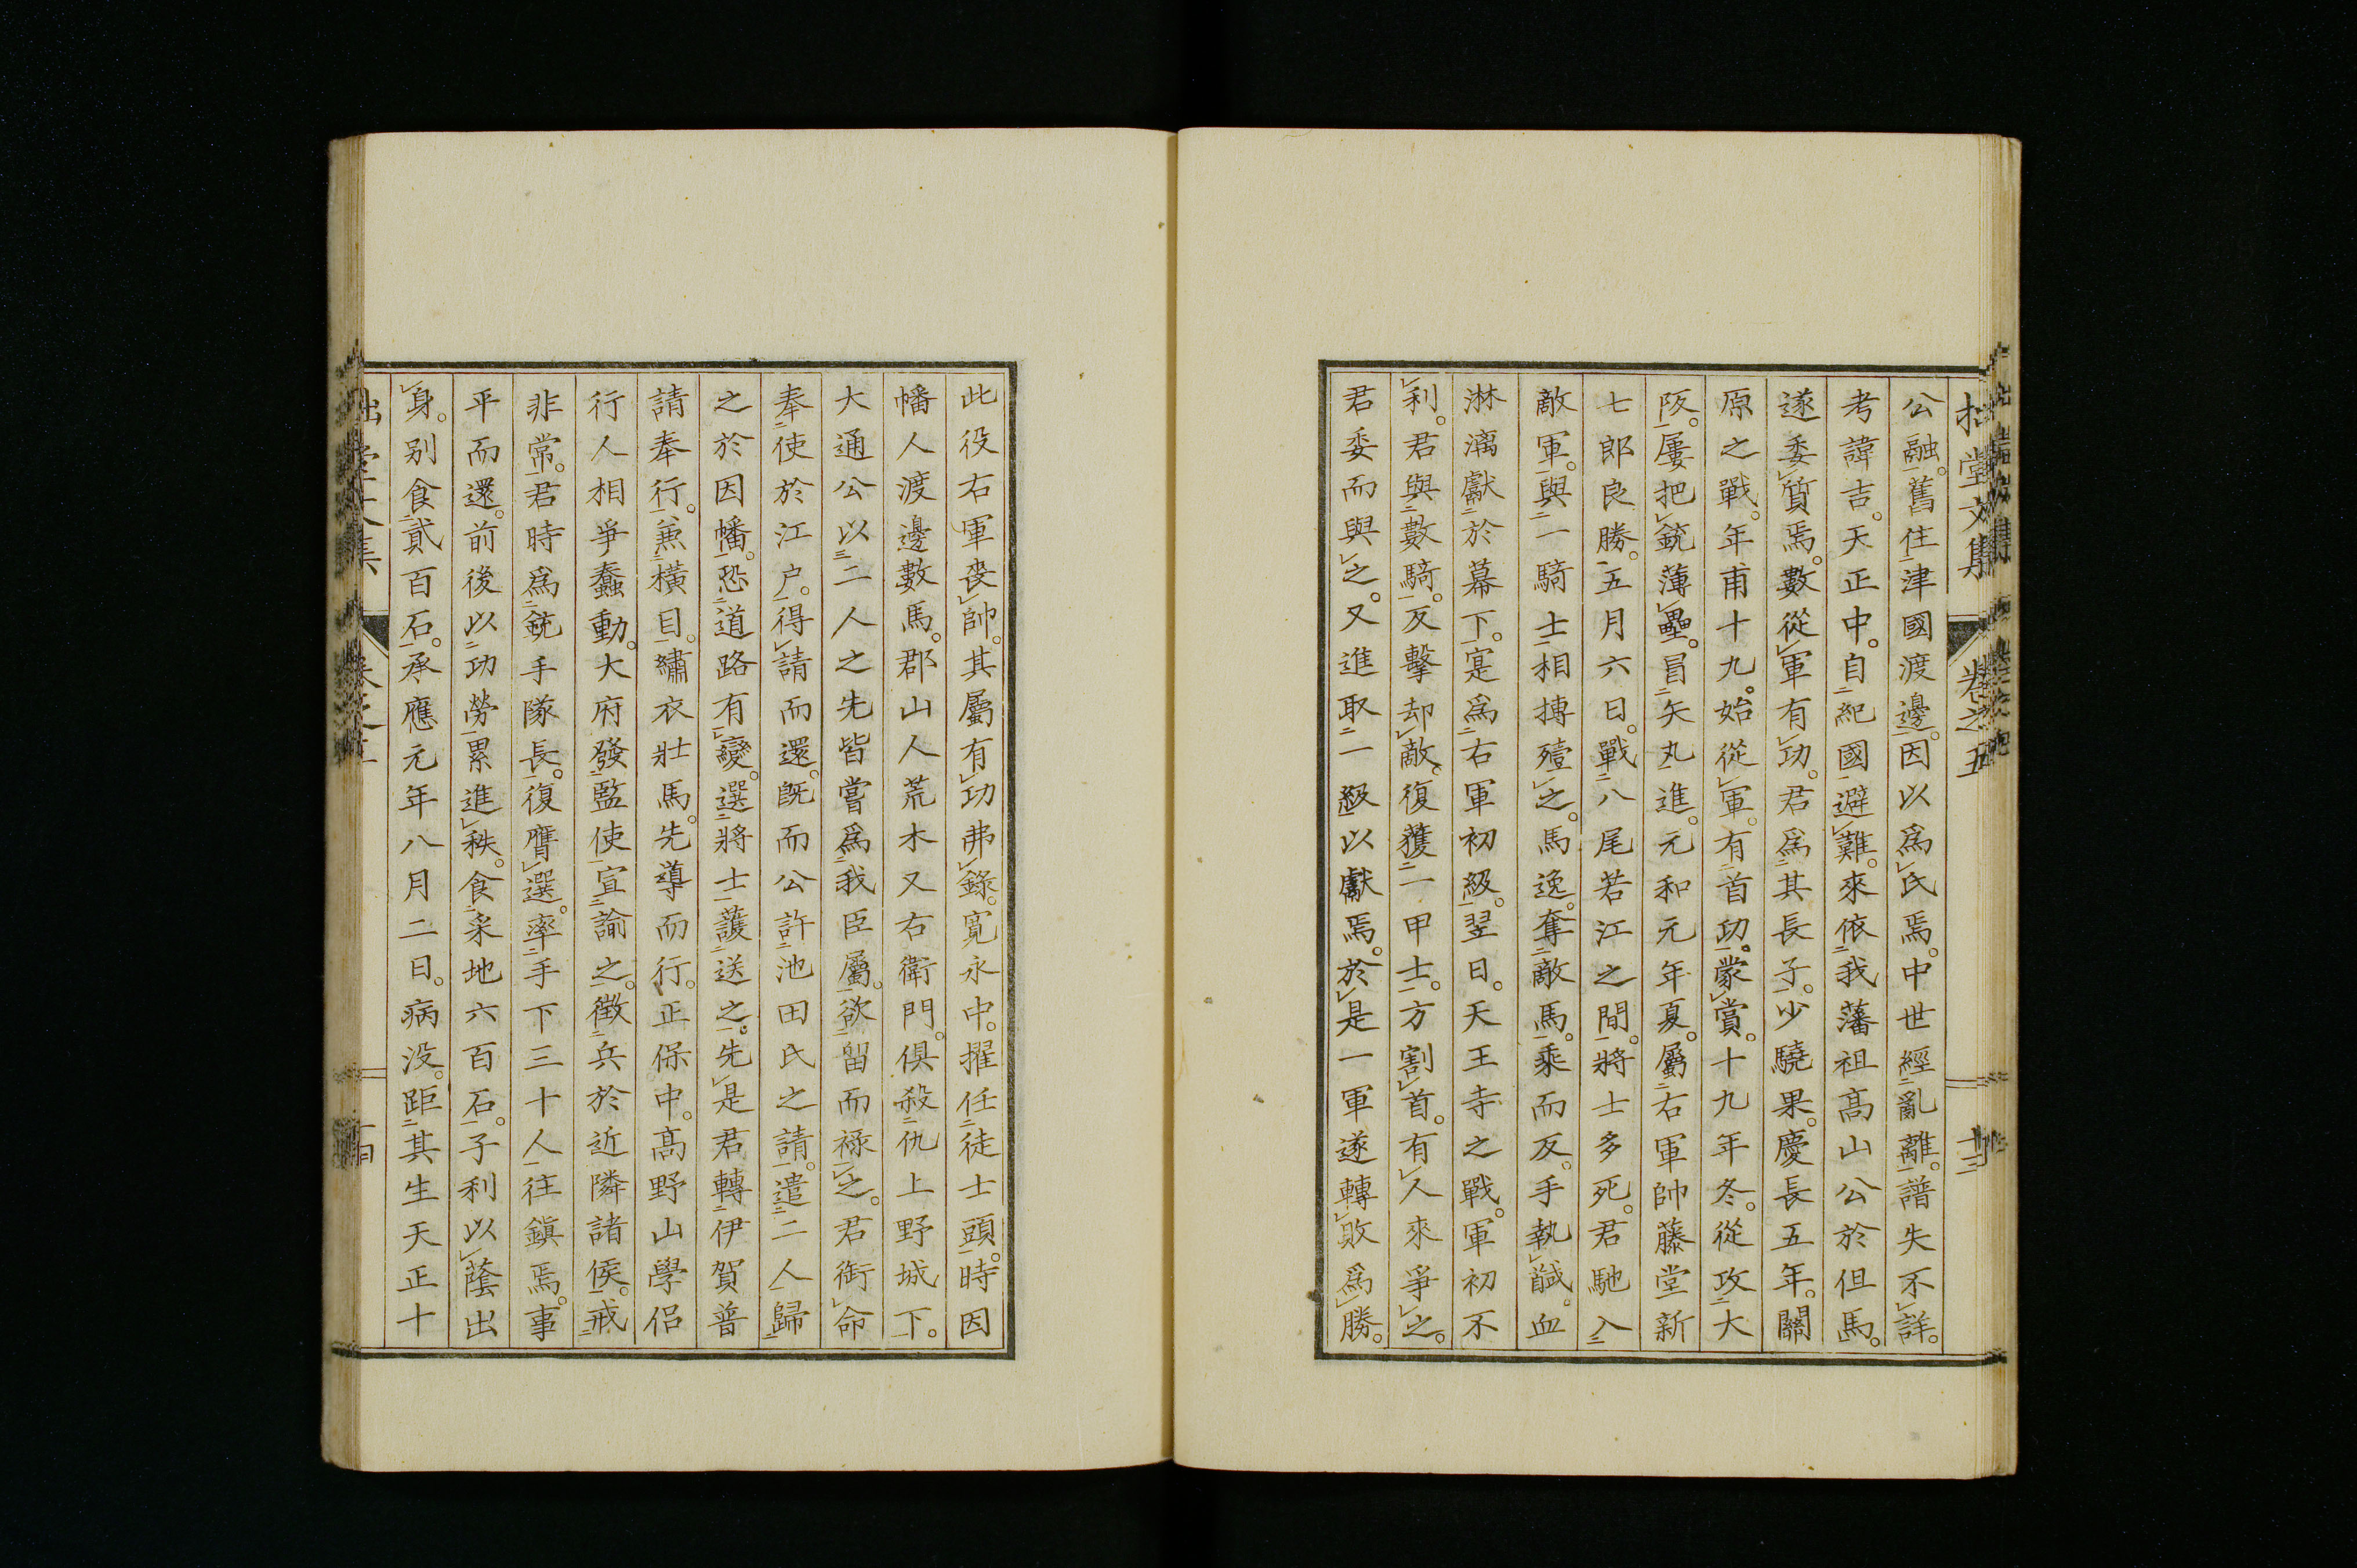 拙堂文集 卷之五 十三
公融。舊住津國渡邊。因以爲氏焉。中世經亂離。譜失不詳。
考諱吉。天正中。自紀國避難。來依我藩祖高山公於但馬。
遂委質焉。數從軍有功。君爲其長子。少驍果。慶長五年。關
原之戰。年甫十九。始從軍。有首功。蒙賞。十九年冬。從攻大
阪。屢把銃薄壘。冒矢丸進。元和元年夏。屬右軍帥藤堂新
七郎良勝。五月六日。戰八尾若江之間。將士多死。君馳入
敵軍。與一騎士相搏殪之。馬逸。奪敵馬。乘而反。手執馘。血
淋漓獻於幕下。寔爲右軍初級。翌日。天王寺之戰。軍初不
利。君與數騎。反擊却敵。復獲一甲士。方割首。有人來爭之。
君委而與之。又進取一級以獻焉。於是一軍遂轉敗爲勝。
此役右軍喪帥。其屬有功弗錄。寬永中。擢任徒士頭。時因
幡人渡邊數馬。郡山人荒木又右衛門。俱殺仇上野城下。
大通公以二人之先皆嘗爲我臣屬。欲留而祿之。君銜命
奉使於江户。得請而還。既而公許池田氏之請。遣二人歸
之於因幡。恐道路有變。選將士護送之。先是君轉伊賀普
請奉行。兼橫目。繡衣壯馬。先導而行。正保中。高野山學侶
行人相爭蠢動。大府發監使宣諭之。徵兵於近隣諸侯。戒
非常。君時爲銃手隊長。復膺選。率手下三十人往鎭焉。事
平而還。前後以功勞累進秩。食采地六百石。子利以蔭出
身。別食貳百石。承應元年八月二日。病没。距其生天正十